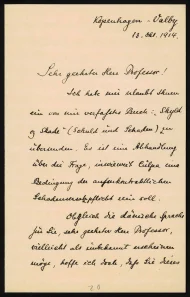 Kopenhagen - Valby
13. Okt. 1914.
Sehr geehrter Herr Professor!
Ich habe mir erlaubt Ihnen
ein von mir verfasstes Buch: „Skyld
og Skade“ (Schuld und Schaden) zu
übersenden. Es ist eine Abhandlung
über die Frage, inwieweit Culpa eine
Bedingung der ausserkontraktlichen
Schadensersatzpflicht sein soll.
Obgleich die dänische Sprache
für Sie, sehr geehrter Herr Professor,
vielleicht als unbekannt
möge, hoffe ich doch, dass Sie dieses